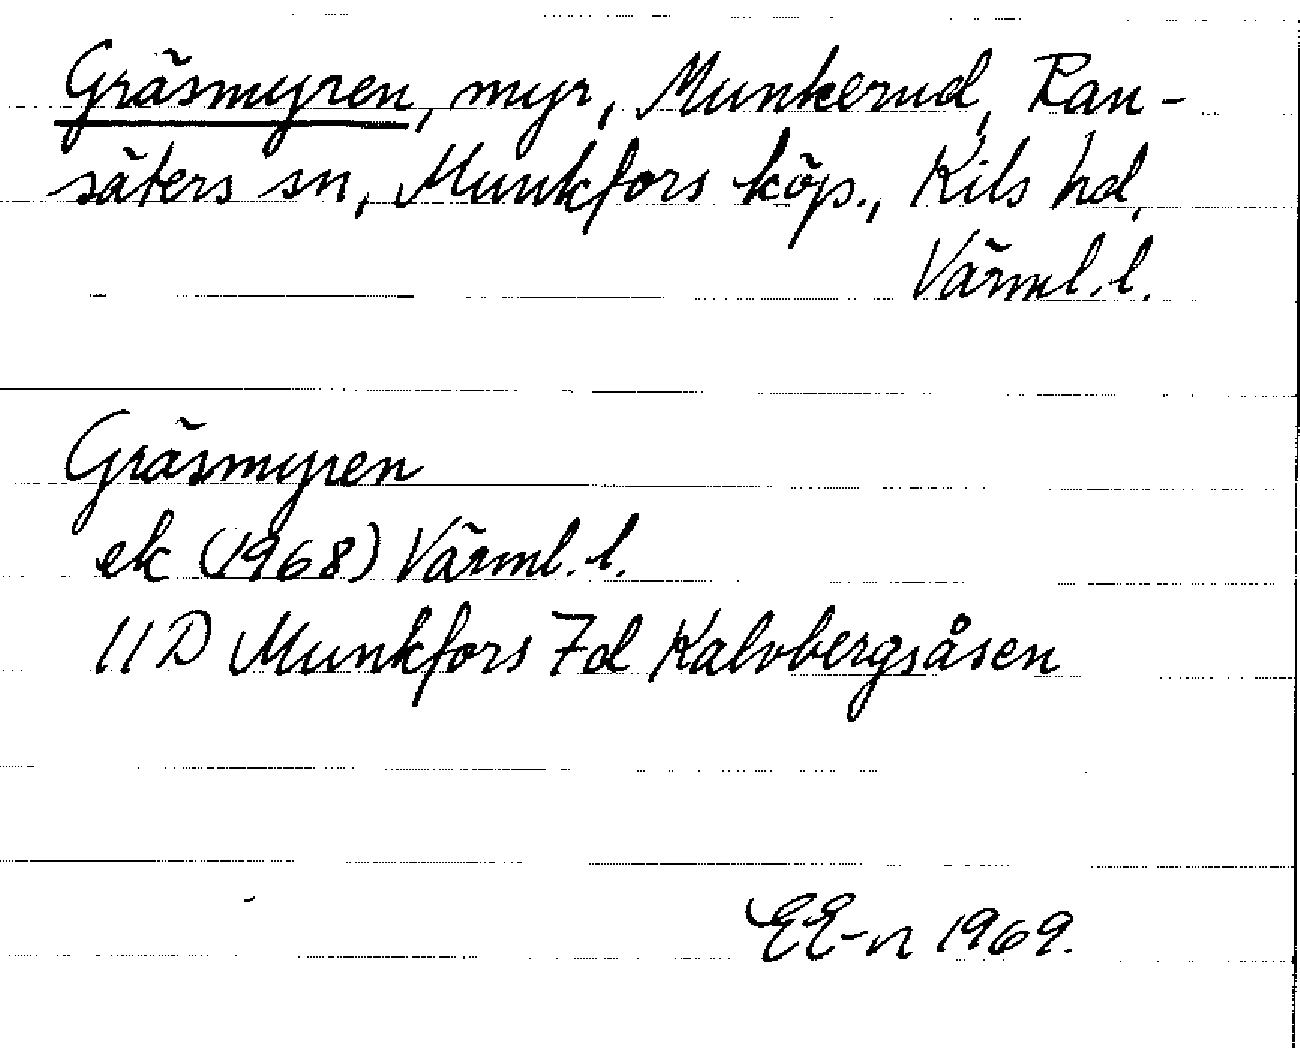 Gräsmyren, myr, Munkerud, Ran-
säters sn, Munkfors köp., Kils hd,
Värml.l.
Gräsmyren
ek (1968) Värml.l.
11 D Munkfors 7d Kalvbergsåsen
EE-n 1969.